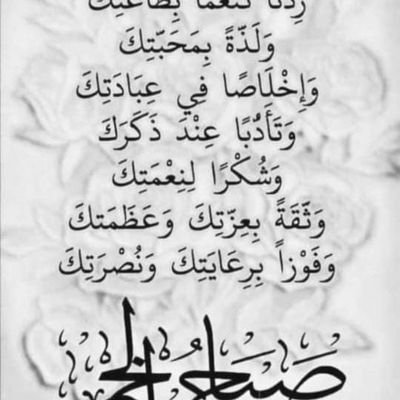 زِدْنَا تَنَعُّمًا بِطَاعَتِكَ
وَلَذَّةً بِمَحَبَّتِكَ
وَإِخْلَاصًا فِي عِبَادَتِكَ
وَتَأَدُّبًا عِنْدَ ذَكَرَكَ
وَشُكْرًا لِنِعْمَتِكَ
وَثَّقَةً بِعِزَّتِكَ وَعَظَمَتكَ
وَفَوْزاً بِرِعَايَتِكَ وَنُصْرَتِكَ
صَبَاحُ الخَيْر